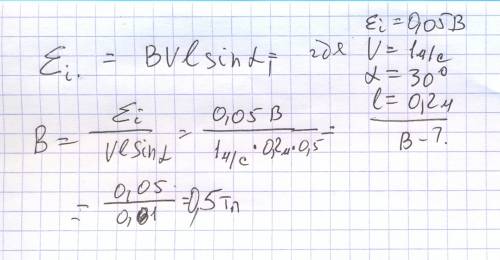 ℰi = BVl sinα, где
ℰi = 0,05 В
V = 1 м/с
α = 30°
l = 0,2 м
B - ?
B = ℰi / Vl sinα = 0,05 В / 1 м/с · 0,2 м · 0,5 =
= 0,05 / 0,01 = 0,5 Тл